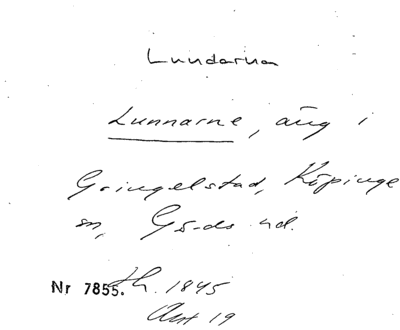 Lundarna
Lunnarne, äng i
Gringelstad, Köpinge
sn, Gärds hd.
Nr 7855. Sh. 1845
Akt 19